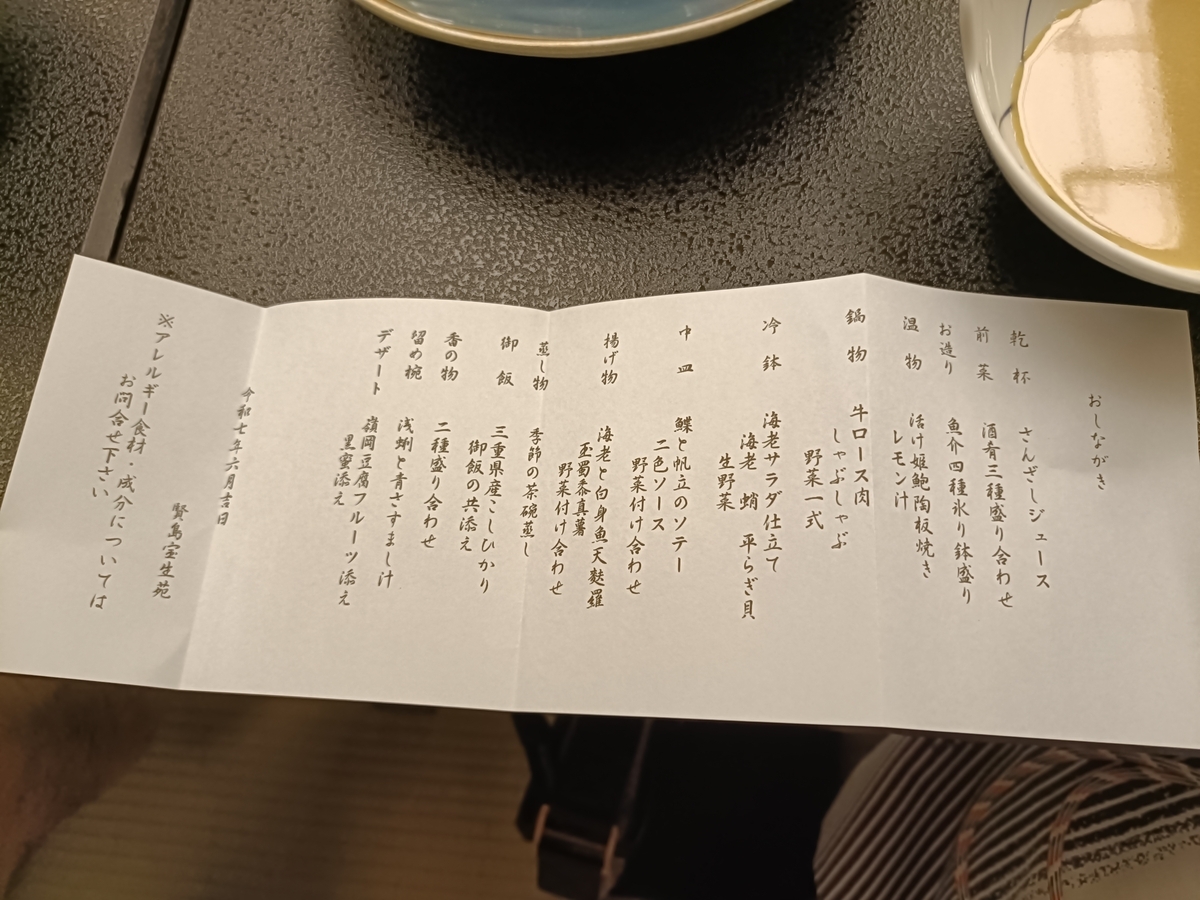 おしながき
乾杯 さんざしジュース
前菜 酒肴三種盛り合わせ
お造り 魚介四種氷り鉢盛り
温物 活け姫鮑陶板焼き
レモン汁
鍋物 牛ロース肉
しゃぶしゃぶ
野菜一式
冷鉢 海老サラダ仕立て
海老 蛸 平らぎ貝
生野菜
中皿 鰈と帆立のソテー
二色ソース
野菜付け合わせ
揚げ物 海老と白身魚天麩羅
玉蜀黍真薯
野菜付け合わせ
蒸し物 季節の茶碗蒸し
御飯 三重県産こしひかり
御飯の共添え
香の物 二種盛り合わせ
留め椀 浅蜊と青さすまし汁
デザート 嶺岡豆腐フルーツ添え
黒蜜添え
令和七年六月吉日
賢島宝生苑
※アレルギー食材・成分については
お問合せ下さい